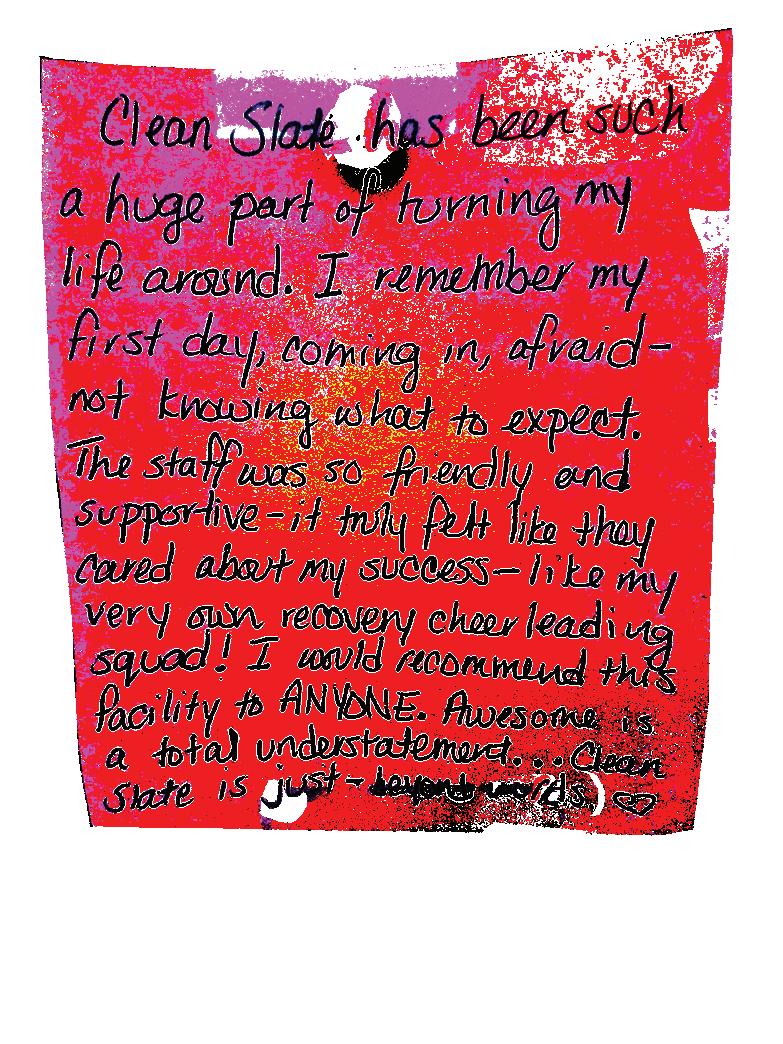 Clean Slate has been such
a huge part of turning my
life around. I remember my
first day, coming in, afraid-
not knowing what to expect.
The staff was so friendly and
supportive-it truly felt like they
cared about my success-like my
very own recovery cheerleading
squad! I would recommend this
facility to ANYONE. Awesome is
a total understatement... Clean
Slate is just-beyond words